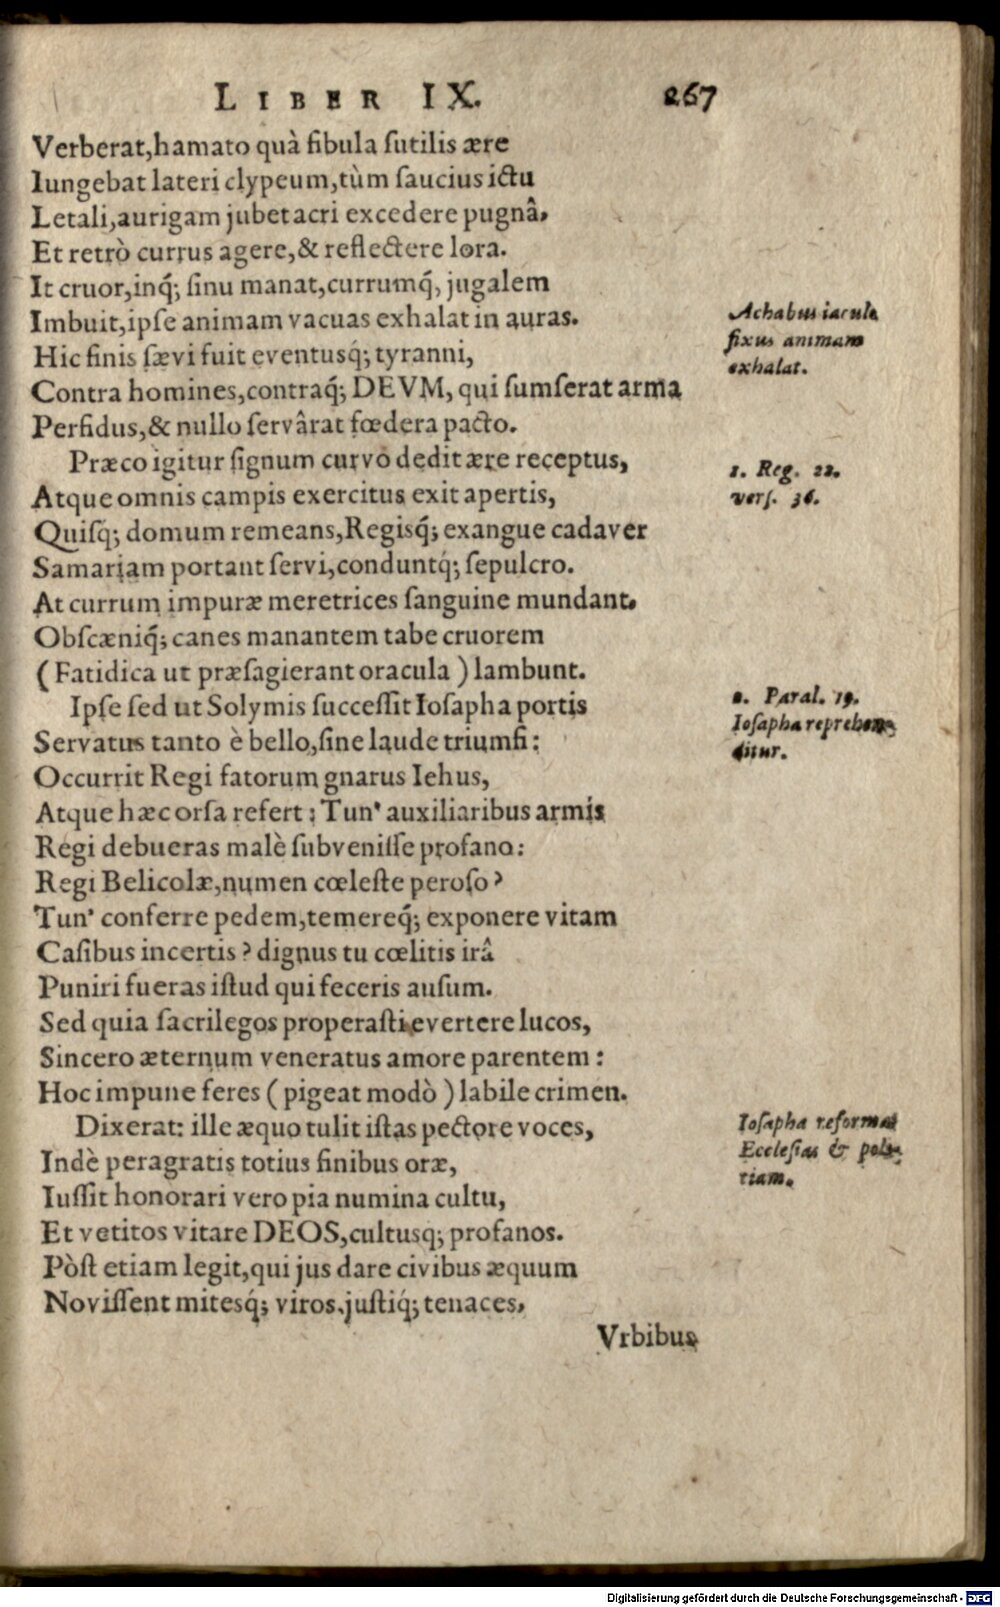 LIBER IX. 267
Verberat, hamato quà fibula ſutilis ære
Iungebat lateri clypeum, tùm ſaucius ictu
Letali, aurigam jubet acri excedere pugnâ,
Et retrò currus agere, & reflectere lora.
It cruor, inq́; ſinu manat, currumq́, jugalem
Imbuit, ipſe animam vacuas exhalat in auras.
Achabus iaculo
fixus animam
exhalat.
Hic finis ſævi fuit eventusq́; tyranni,
Contra homines, contraq́; DEVM, qui ſumſerat arma
Perfidus, & nullo ſervârat fœdera pacto.
Præco igitur ſignum curvo dedit ære receptus,
1. Reg. 22.
verſ. 36.
Atque omnis campis exercitus exit apertis,
Quiſq́; domum remeans, Regisq́; exangue cadaver
Samariam portant ſervi, conduntq́; ſepulcro.
At currum impuræ meretrices ſanguine mundant,
Obſcæniq́; canes manantem tabe cruorem
(Fatidica ut præſagierant oracula) lambunt.
Ipſe ſed ut Solymis ſucceſſit Ioſapha portis
2. Paral. 19.
Ioſapha reprehen-
ditur.
Servatus tanto è bello, ſine laude triumfi:
Occurrit Regi fatorum gnarus Iehus,
Atque hæc orſa refert: Tun' auxiliaribus armis
Regi debueras malè ſubveniſſe profano:
Regi Belicolæ, numen cœleſte peroſo?
Tun' conferre pedem, temereq́; exponere vitam
Caſibus incertis? dignus tu cœlitis irâ
Puniri fueras iſtud qui feceris auſum.
Sed quia ſacrilegos properaſti evertere lucos,
Sincero æternum veneratus amore parentem:
Hoc impune feres (pigeat modò) labile crimen.
Dixerat: ille æquo tulit iſtas pectore voces,
Ioſapha reformat
Eccleſias & poli-
tiam.
Indè peragratis totius finibus oræ,
Iuſſit honorari vero pia numina cultu,
Et vetitos vitare DEOS, cultusq; profanos.
Pòſt etiam legit, qui jus dare civibus æquum
Noviſſent mitesq́; viros, juſtiq́; tenaces,
Vrbibus
Digitalisierung gefördert durch die Deutsche Forschungsgemeinschaft - DFG